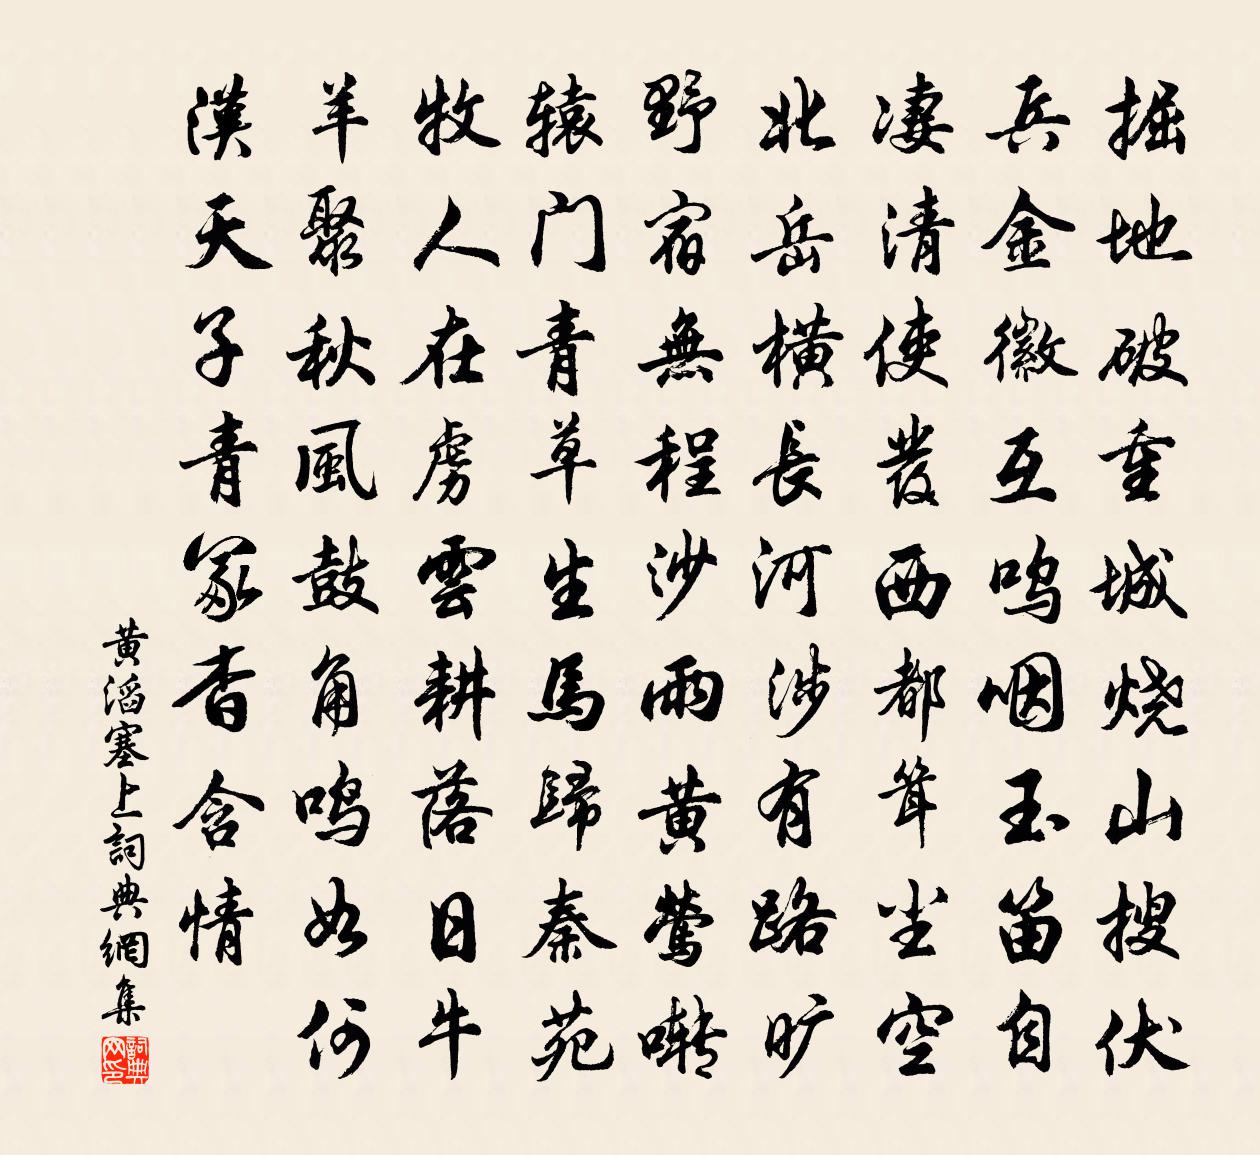 掘地破重城烧山搜伏
兵金徽互鸣咽玉笛自
凄清使發西都耸尘空
北岳横長河涉有路旷
野宿無程沙雨黄鶯啭
辕门青草生馬歸秦苑
牧人在虏雲耕落日牛
羊聚秋風鼓角鸣如何
漢天子青冢杳含情
黄滔塞上詞典網集
詞典网印